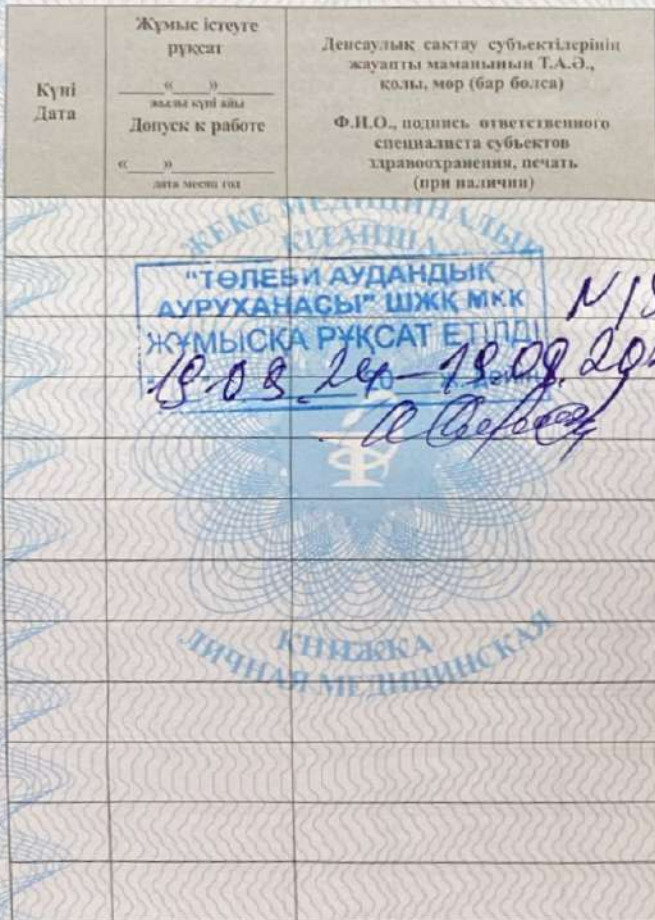 Күні
Дата
Жұмыс істеуге
рұқсат
«___»
жылы күні айы
Допуск к работе
«___»
дата месяц год
Денсаулық сақтау субъектілерінің
жауапты маманының Т.А.Ә.,
қолы, мөр (бар болса)
Ф.И.О., подпись ответственного
специалиста субъектов
здравоохранения, печать
(при наличии)
ЖЕКЕ МЕДИЦИНАЛЫҚ
КІТАПША
"ТӨЛЕБИ АУДАНДЫҚ
АУРУХАНАСЫ" ШЖҚ МКК
ЖҰМЫСҚА РҰҚСАТ ЕТІЛДІ
19.09.24 – 19.09.20
КНИЖКА
ЛИЧНАЯ МЕДИЦИНСКАЯ